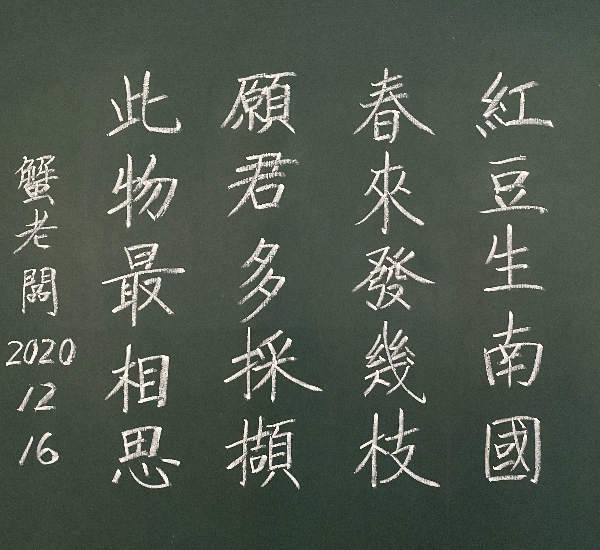 紅豆生南國
春來發幾枝
願君多採擷
此物最相思
蟹老闆
2020
12
16